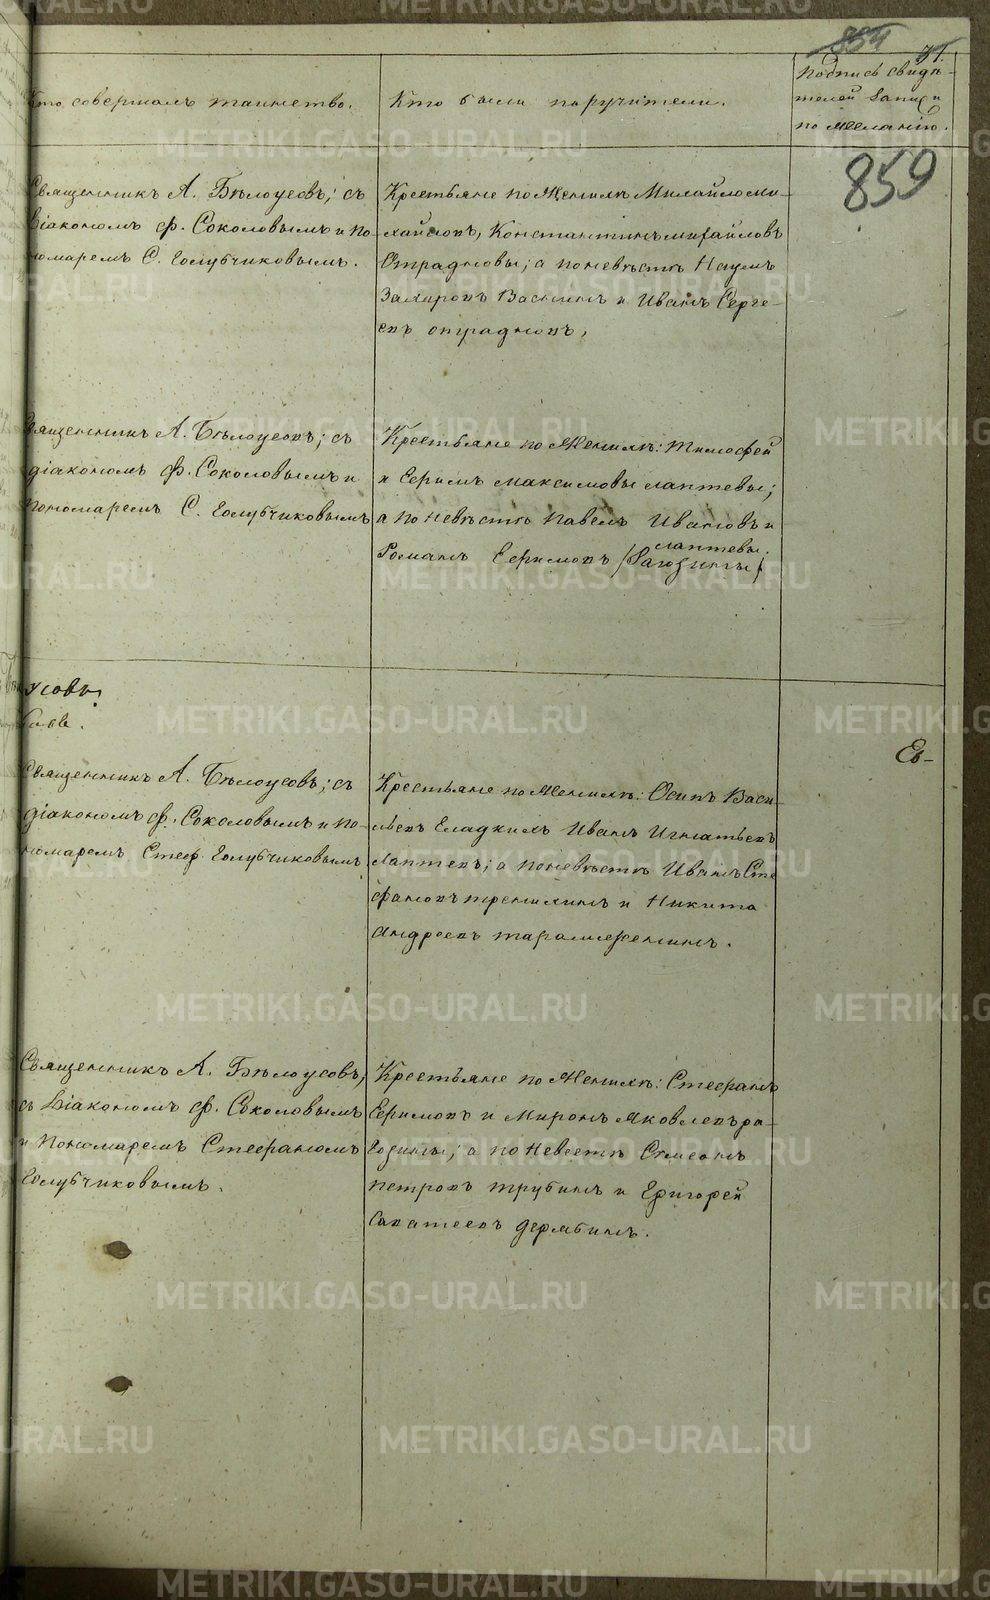 854
31.
Кто совершалъ таинство.
Кто были поручители.
Подпись свидѣ-
телей записи
по желанію.
859
Священникъ А. Бѣлоусовъ; съ
діакономъ Ф. Соколовымъ и по-
номаремъ С. Голубчиковымъ.
Крестьяне по Женихѣ Михайло Ми-
хайловъ, Константинъ Михайловъ
Отрадновы; а по невѣстѣ Наумъ
Захаровъ Васнинъ и Иванъ Серге-
евъ Отрадновъ,
Священникъ А. Бѣлоусовъ; съ
діакономъ Ф. Соколовымъ и
пономаремъ С. Голубчиковымъ
Крестьяне по Женихѣ: Тимофей
и Ефимъ Максимовы Лаптевы;
а по невѣстѣ Павелъ Ивановъ и
Лаптевы.
Романъ Ефимовъ /Рагозины/
усовъ
Священникъ А. Бѣлоусовъ; съ
діакономъ Ф. Соколовымъ и по-
номаремъ Стеф. Голубчиковымъ.
Крестьяне по Женихѣ: Осипъ Васи-
льевъ Гладкихъ Иванъ Игнатьевъ
Лаптевъ; а по невѣстѣ Иванъ Сте
фановъ Тренихинъ и Никита
Андреевъ
Священникъ А. Бѣлоусовъ,
съ Діакономъ Ф. Соколовымъ
и Пономаремъ Стефаномъ
Голубчиковымъ.
Крестьяне по Женихѣ: Стефанъ
Ефимовъ и Миронъ Яковлевъ Ра-
гозины; а по невѣстѣ Симеонъ
Петровъ Трубинъ и Григорей
Саватеевъ Дерябинъ.
METRIKI.GASO-URAL.RU